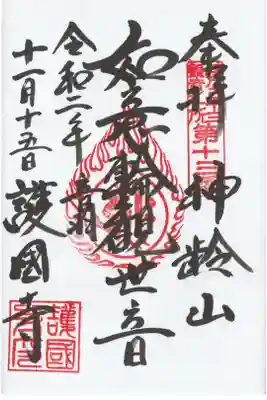 奉拝 神齢山
第十三
如意輪觀世音
令和二年
十一月十五日 護國寺
護國